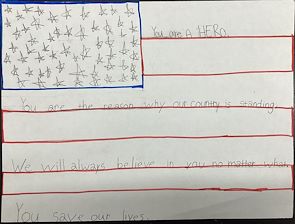 You are A HERO.
You are the reason why our country is standing.
We will always believe in you no matter what.
You save our lives.